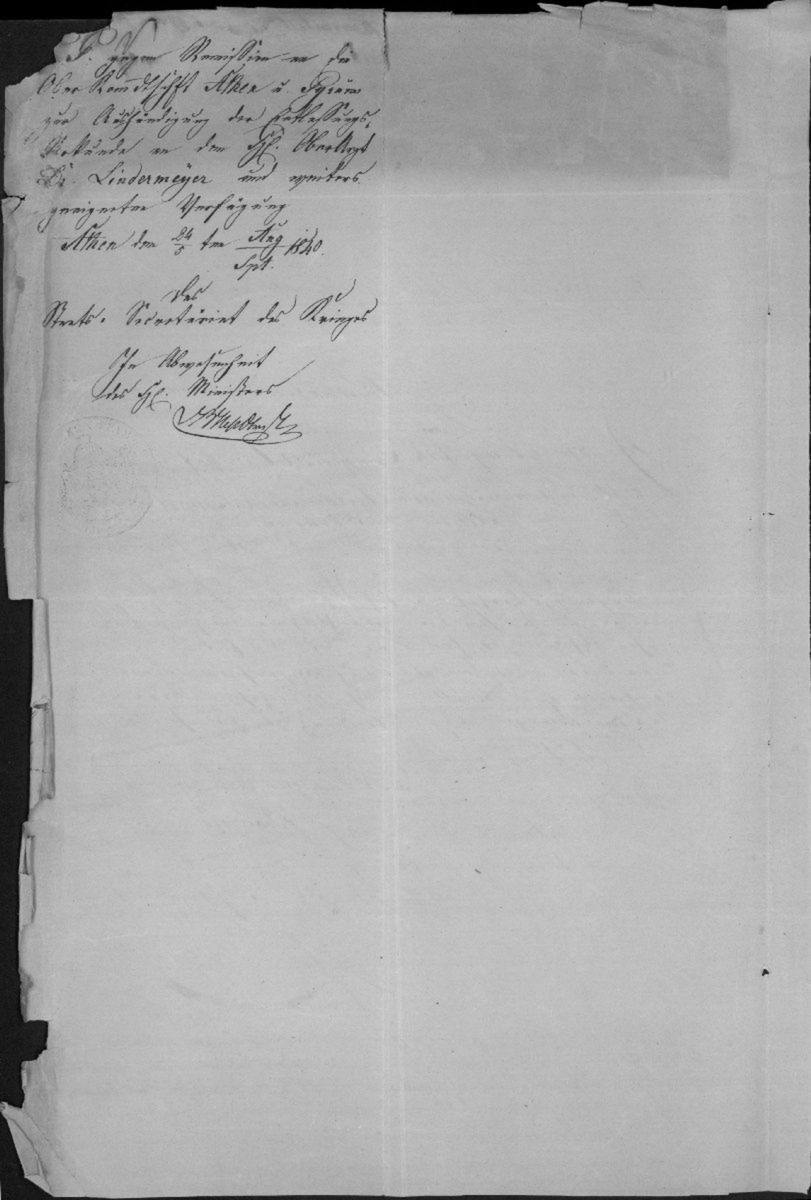 P. gegen Remission an die
Ober Komdtschft Athen u. Pyraeus
zur Aushändigung der Entlassungs-
Urkunde an den H. Oberarzt
Dr. Lindermeyer und weiters
geeigneten Verfügung
Athen den 24/5 ten Aug/Spt. 1840.
Das
Staats-Secretariat des Krieges
In Abwesenheit
des H. Ministers